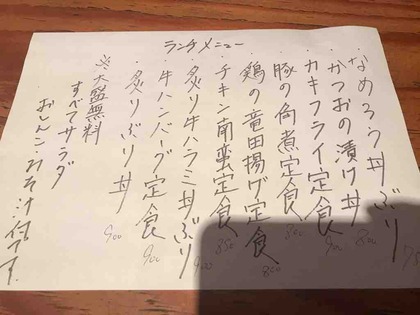 ランチメニュー
・なめろう丼ぶり
・かつおの漬け丼 800
・カキフライ定食 900
・豚の角煮定食 800
・鶏の竜田揚げ定食 800
・チキン南蛮定食 850
・炙り牛ハラミ丼ぶり 900
・牛ハンバーグ定食 900
・炙りぶり丼 900
※大盛無料
すべてサラダ
おしんこみそ汁付です。